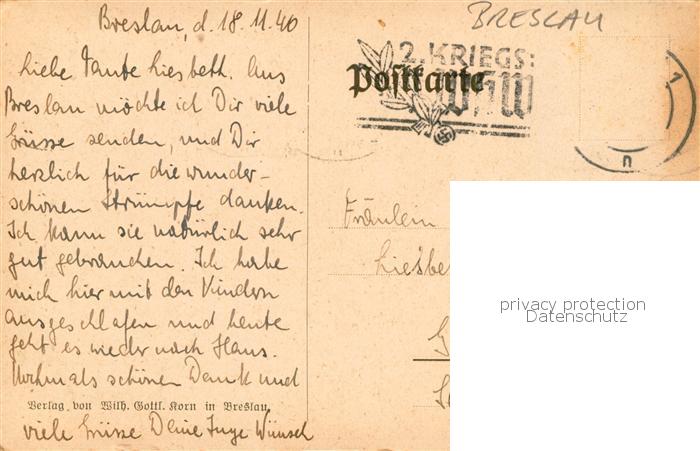 Breslau, d. 18.11.40
BRESLAU
2. KRIEGS:
WHW
Postkarte
Liebe Tante Liesbeth. Aus
Breslau möchte ich Dir viele
Grüsse senden, und Dir
herzlich für die wunder-
schönen Strümpfe danken.
Ich kann sie natürlich sehr
gut gebrauchen. Ich habe
mich hier mit den Kindern
ausgeschlafen und heute
geht es wieder nach Haus.
Nochmals schönen Dank und
Verlag von Wilh. Gottl. Korn in Breslau.
viele Grüsse Deine Inge Wünsch
Fräulein
Liesbe
G
privacy protection
Datenschutz